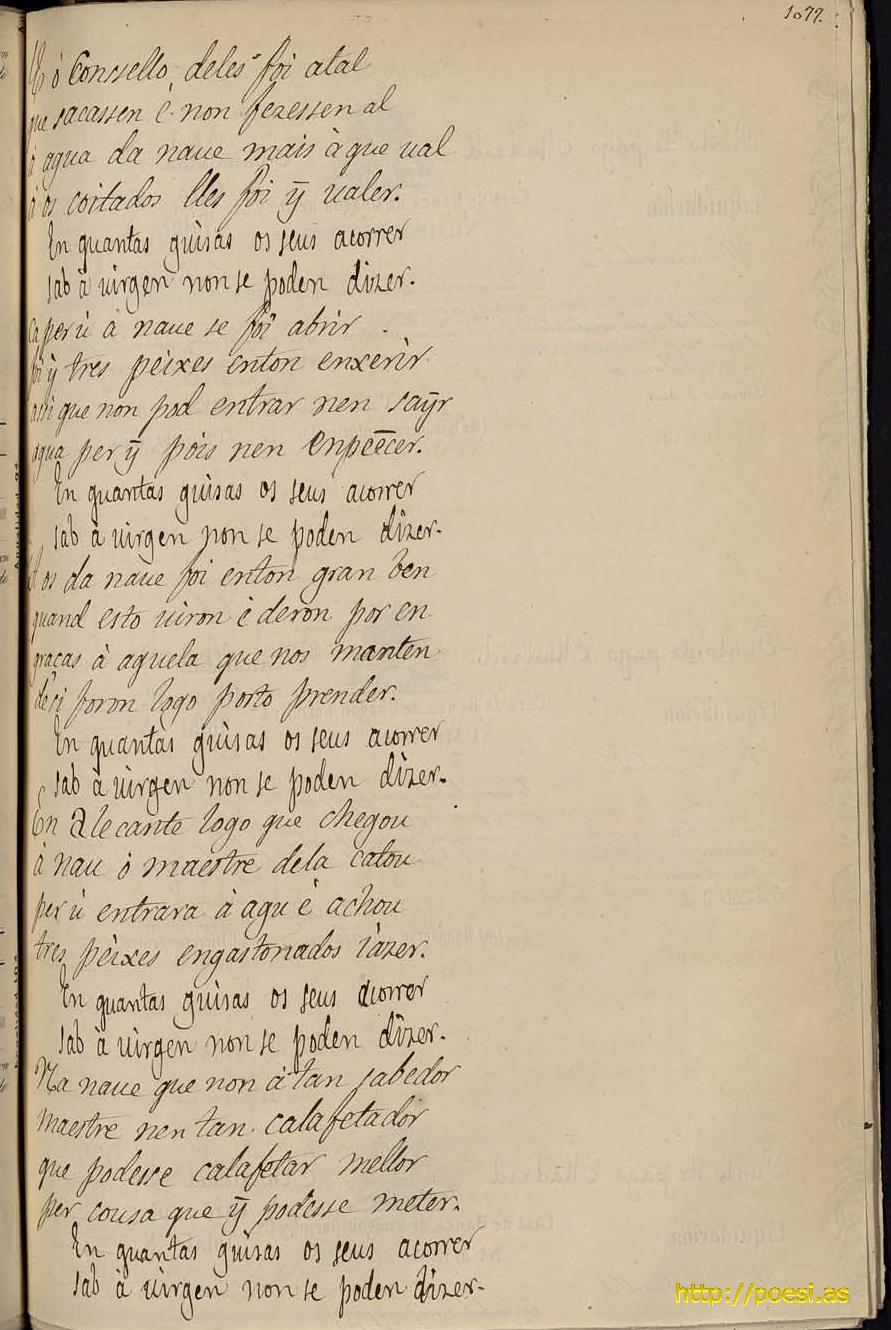 1077.
E ó Conssello deles foi atal
que sacassen é non fezessen al
à agua da naue mais à que ual
à os coitados lles foi ȳ ualer.
En quantas guisas os seus acorrer
sab à uirgen non se poden dizer.
Ca per ú à naue se foi abrir
foi ȳ tres peixes enton enxerir
assi que non pod entrar nen saȳr
agua per ȳ pois nen enpeēcer.
En quantas guisas os seus acorrer
sab à uirgen non se poden dizer.
os da naue foi enton gran ben
quand esto uiron é deron por en
graças à aquela que nos manten
des i foron logo porto prender.
En quantas guisas os seus acorrer
sab à uirgen non se poden dizer.
En Alecante logo que chegou
à nau ó maestre dela catou
per ú entrara à agu é achou
tres peixes engastonados iazer.
En quantas guisas os seus acorrer
sab à uirgen non se poden dizer.
Na naue que non à tan sabedor
maestre nen tan calafetador
que podesse calafetar mellor
per cousa que ȳ podesse meter.
En quantas guisas os seus acorrer
sab à uirgen non se poden dizer.
http://poesi.as